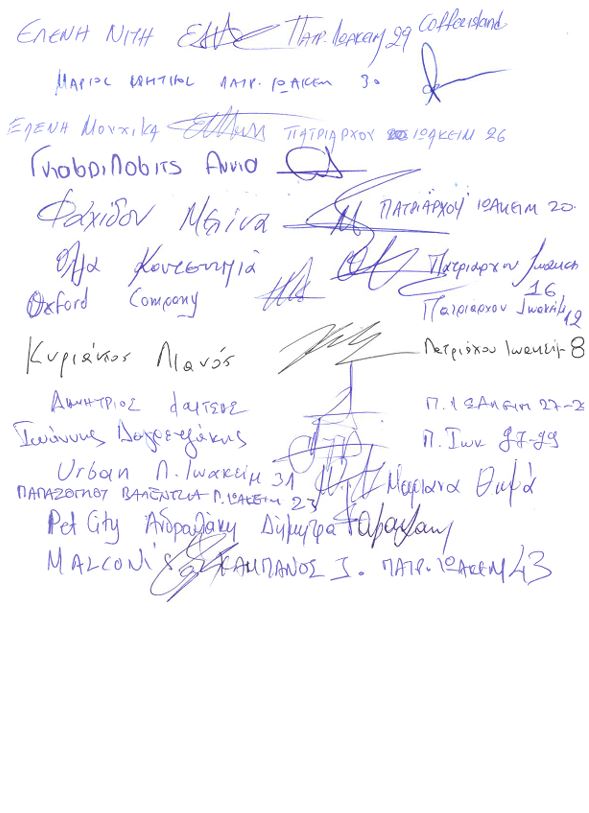 ΕΛΕΝΗ ΝΙΤΗ ΠΑΤΡ. ΙΩΑΚΕΙΜ 29 Coffeeisland
ΜΑΡΙΟΣ ΠΑΤΡ. ΙΩΑΚΕΙΜ 30
ΕΛΕΝΗ Μουχικα ΠΑΤΡΙΑΡΧΟΥ ΙΩΑΚΕΙΜ 26
Γκιαβριλοβιτς Αννια
Φαχίδου Μελίνα ΠΑΤΡΙΑΡΧΟΥ ΙΩΑΚΕΙΜ 20
Όλγα Πατριάρχου Ιωακειμ 16
Oxford Company Πατριάρχου Ιωακείμ 12
Κυριάκος Λιανός Πατριάρχου Ιωακείμ 8
ΔΗΜΗΤΡΙΟΣ Π. ΙΩΑΚΕΙΜ 27-2
Ιωάννης Π. Ιωακ 27-29
Urban Π. Ιωακείμ 31 Μαριανα Θωμά
ΠΑΠΑΖΟΓΛΟΥ ΒΑΛΕΝΤΙΑ Π. ΙΩΑΚΕΙΜ 23
Pet City Ανδρουλάκη Δήμητρα
MALCONI'S ΚΑΜΠΑΝΟΣ Ι. ΠΑΤΡ. ΙΩΑΚΕΙΜ 43